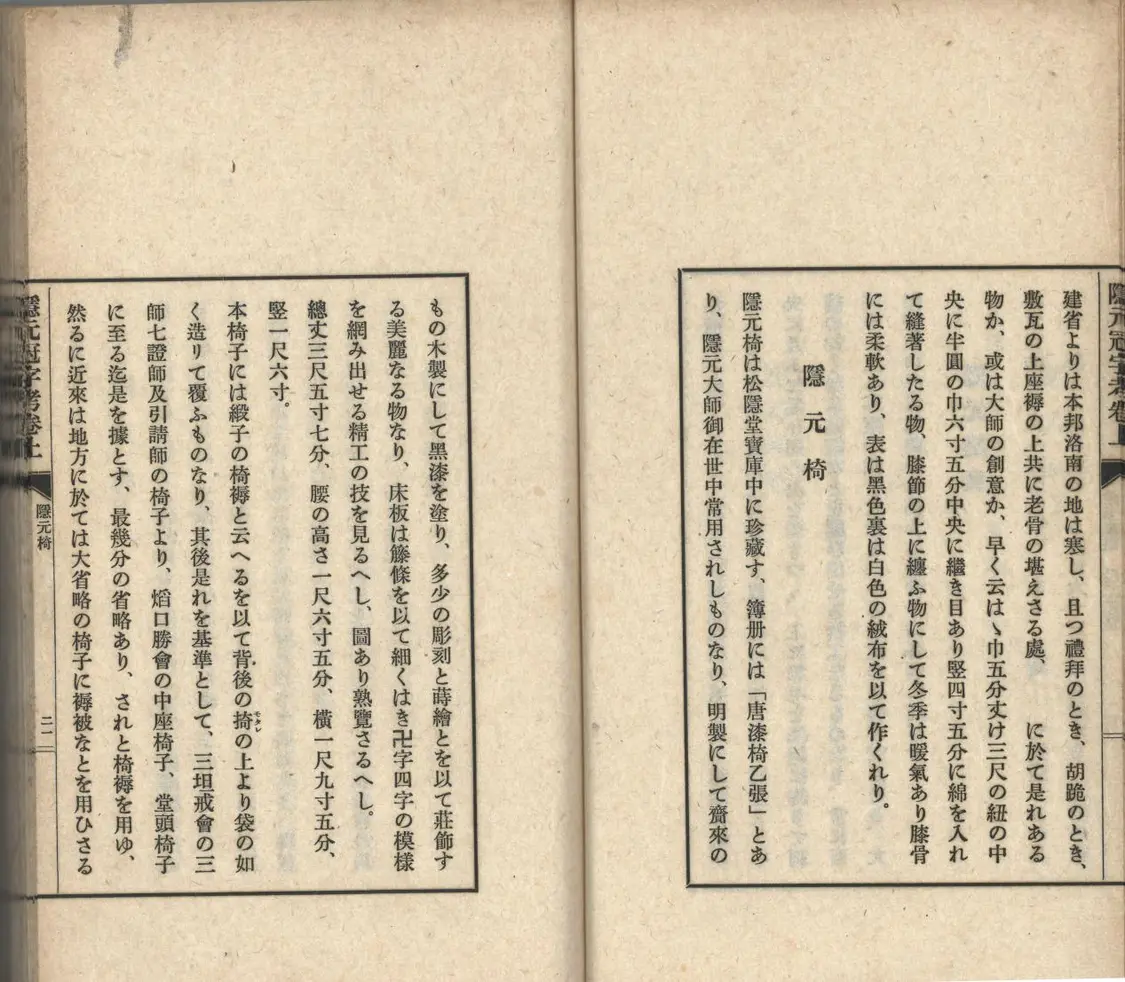 隱元冠字考卷上
建省よりは本邦洛南の地は寒し、且つ禮拜のとき、胡跪のとき、
敷瓦の上座褥の上共に老骨の堪えさる處、　　に於て是れある
物か、或は大師の創意か、早く云はゝ巾五分丈け三尺の紐の中
央に半圓の巾六寸五分中央に繼き目あり竪四寸五分に綿を入れ
て縫著したる物、膝節の上に纏ふ物にして冬季は暖氣あり膝骨
には柔軟あり、表は黑色裏は白色の絨布を以て作くれり。
隱元椅
隱元椅は松隱堂寶庫中に珍藏す、簿册には「唐漆椅乙張」とあ
り、隱元大師御在世中常用されしものなり、明製にして齎來の
もの木製にして黑漆を塗り、多少の彫刻と蒔繪とを以て莊飾す
る美麗なる物なり、床板は籐條を以て細くはき卍字四字の模樣
を網み出せる精工の技を見るへし、圖あり熟覽さるへし。
總丈三尺五寸七分、腰の高さ一尺六寸五分、橫一尺九寸五分、
竪一尺六寸。
本椅子には緞子の椅褥と云へるを以て背後の掎モタレの上より袋の如
く造りて覆ふものなり、其後是れを基準として、三坦戒會の三
師七證師及引請師の椅子より、熖口勝會の中座椅子、堂頭椅子
に至る迄是を據とす、最幾分の省略あり、されと椅褥を用ゆ、
然るに近來は地方に於ては大省略の椅子に褥被なとを用ひさる
隱元冠字考卷上
隱元椅
二一